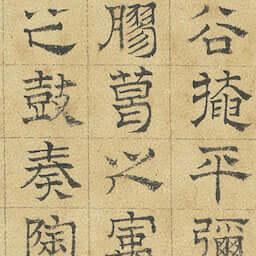 谷掩平彌
膠葛之寓
之鼓奏陶